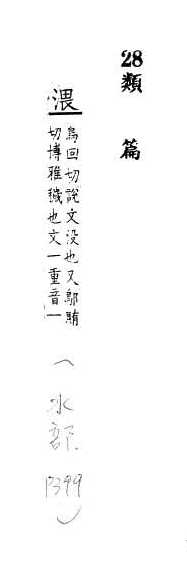 28類篇
渨
烏回切說文没也又鄔賄
切博雅穢也文一重音一
(水部
P399)